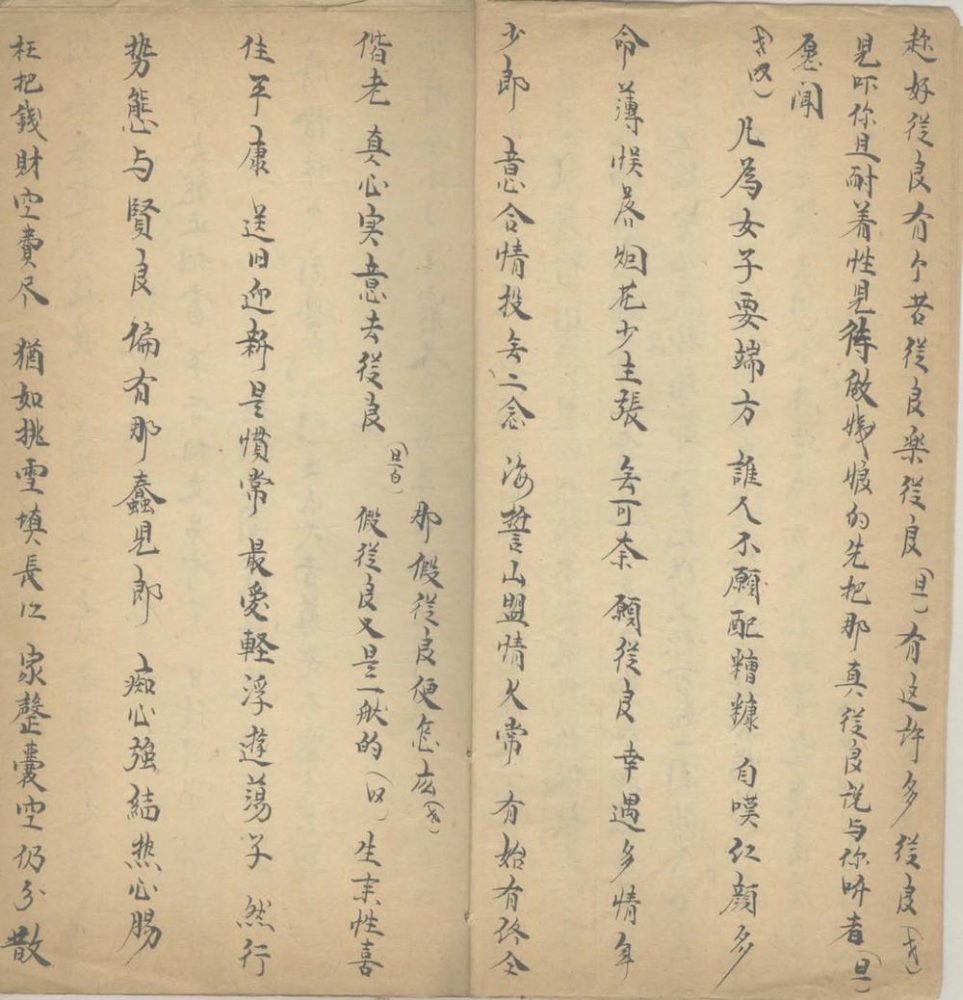 趂好從良有个苦從良樂從良(旦)有这許多從良(丑)
見吓你且耐着性見待做媽娘的先把那真從良説与你听者(旦)
愿闻
(丑唱)凡為女子要端方 誰人不願配糟糠 自嘆红顔多
命薄悮落烟花少主張 無可奈願從良 幸遇多情年
少郎 意合情投無二念 海誓山盟情义常 有始有终仝
偕老 真心实意去從良(旦白)那假從良便怎庅(丑)
假從良又是一般的(唱)生来性喜
住平康 送旧迎新是慣常 最爱軽浮遊蕩子 然行
势態与賢良 偏有那蠢児郎 痴心強結热心腸
枉把錢財空費尽 猶如挑雪填長江 家整囊空仍分散